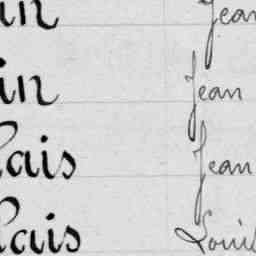 in Jean
in Jean
lais Jean
lais Louis